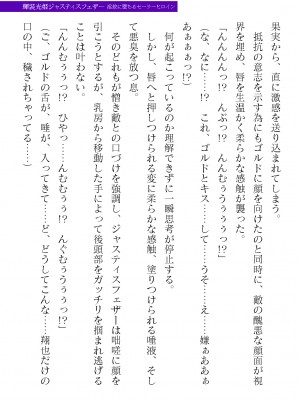 輝装光姫ジャスティスフェザー 乱欲に堕ちるセーラーヒロイン
果実から、直に激感を送り込まれてしまう。
抵抗の意志を示す為にもゴルドに顔を向けたのと同時に、敵の醜悪な顔面が視
界を埋め、唇を生温かく柔らかな感触が襲った。
「んんんんっ!? んぶっ!? んんむぅぅぅっ!?」
(な、なに……!? これ、ゴルドとキス……して……うそ……え……嫌ぁあああ
あぁぁぁっ!?)
何が起こっているのか理解できずに一瞬思考が停止する。
しかし、唇へと押しつけられる変に柔らかな感触、塗りつけられる唾液、そし
て悪臭を放つ息。
そのどれもが憎き敵との口づけを強調し、ジャスティスフェザーは咄嗟に顔を
引こうとするが、乳房から移動した手によって後頭部をガッチリ掴まれ逃げる
ことは叶わない。
「んんむぅぅっ!? ひやっ……んむぅぅっ!? んぐむぅうぅぅっ!?」
(こ、ゴルドの舌が、唾が、入ってきて……ど、どうしてこんな……翔也だけの
口の中、穢されちゃってる……)